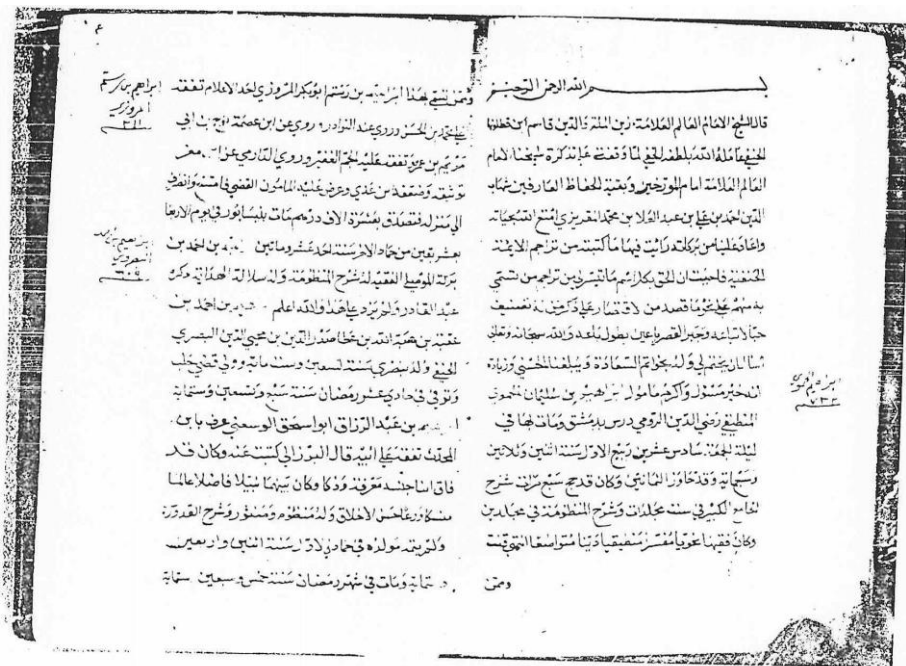 بسم الله الرحمن الرحيم
قال الشيخ الامام العالم العلامة زين الملة والدين قاسم ابن قطلوبغا
الحنفي عامله الله بلطفه الخفي لما وقفت على تذكرة شيخنا الامام
العالم العلامة امام المورخين وبقية الحفاظ العارفين شهاب
الدين احمد بن علي بن عبد العلا بن محمد المقريزي امتع الله بحياته
واعاد علينا من بركاته رايت فيها ما كتبته من تراجم الايمة
الحنفية فاحببت ان الحق بكل اسم ما تيسر لي من تراجم من تسمى
به منهم على نحو ما قصد من الاقتصار على ذكر من له تصنيف
والله سبحانه وتعالى
اسال ان يختم لي وله بخواتم السعادة ويبلغنا الحسنى وزيادة
انه خير مسئول واكرم مامول ابراهيم بن سليمان الحموي
المنطقي رضي الدين الرومي درس بدمشق ومات بها في
ليلة الجمعة سادس عشرين ربيع الاول سنة اثنين وثلاثين
وسبعماية وقد جاوز الثمانين وكان قد حج سبع مرات شرح
الجامع الكبير في ستة مجلدات وشرح المنظومة في مجلدين
وكان فقيها نحويا مفسرا منطقيا دينا متواضعا انتهى قلت
وممن
ابراهيم
٧٣٢
٤
وممن تسمى بهذا ابراهيم بن رستم ابو بكر المروزي احد الاعلام تفقه
على محمد بن الحسن وروى عنه النوادر وروى عن ابن عصمة نوح بن ابي
مريم بن عربي تفقه عليه الجم الغفير وروى الدارمي عن ابن معين
توثيقه وضعفه بن عدي وعرض عليه المامون القضى فامتنع وانصرف
الى منزله فتصدق بعشرة الاف درهم مات بنيسابور في يوم الاربعا
لعشر بقين من جماد الاخر سنة احد عشر وماتين ابراهيم بن احمد بن
بركة الموصلي الفقيه له شرح المنظومة وله سلالة الهداية ذكره
عبد القادر ولم يزد على هذا والله اعلم ابراهيم بن احمد بن
عقبة بن هبة الله بن عطا صدر الدين بن محيي الدين البصري
الحنفي ولد ببصرى سنة تسعين وست ماية وولي قضى حلب
وتوفي في حادي عشر رمضان سنة سبع وتسعين وستماية
ابراهيم بن عبد الرزاق ابو اسحق الرسعني عرف بابن
المحدث تفقه على ابيه قال البرزالي كتبت عنه وكان قد
فاق ابنا جنسه معرفة وذكا وكان نبيها نبيلا فاضلا عالما
حسن الاخلاق وله منظوم ومنثور وشرح القدوري
ولم يتمه مولده في جمادى الاول سنة اثنين واربعين
وستماية ومات في شهر رمضان سنة خمس وسبعين ستماية
ابراهيم بن رستم
المروزي
٢١١
ابراهيم